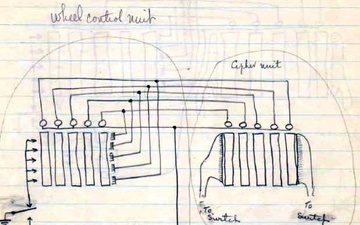 wheel control unit
Cipher unit
To
Switch
To
Switch